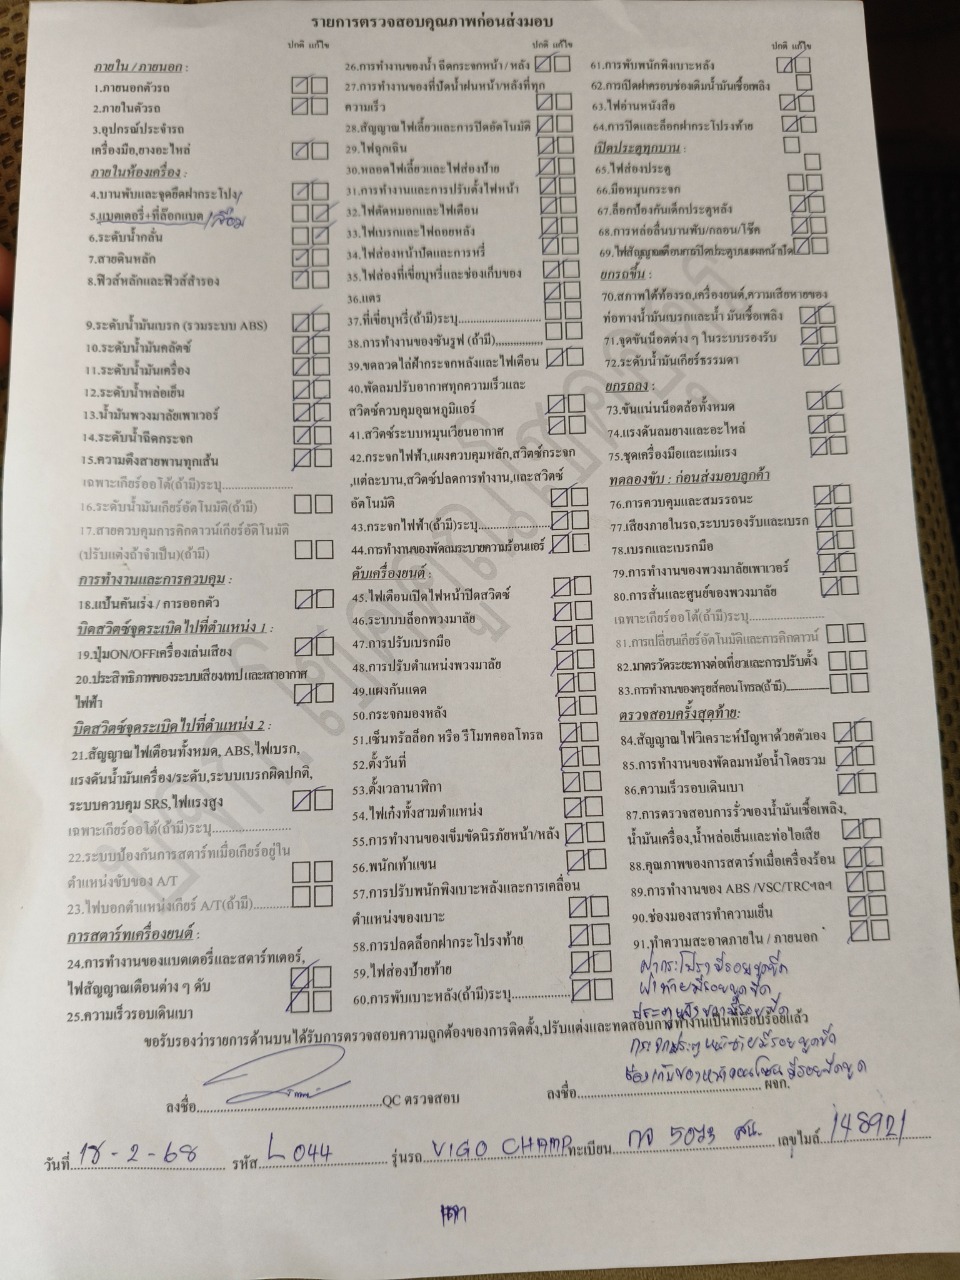 รายการตรวจสอบคุณภาพก่อนส่งมอบ
ปกติ แก้ไข
ภายใน / ภายนอก :
1.ภายนอกตัวรถ
2.ภายในตัวรถ
3.อุปกรณ์ประจำรถ
เครื่องมือ,ยางอะไหล่
ภายในห้องเครื่อง :
4.บานพับและจุดยึดฝากระโปง/
5.แบตเตอรี่+ที่ล๊อกแบต / เสื่อม
6.ระดับน้ำกลั่น
7.สายดินหลัก
8.ฟิวส์หลักและฟิวส์สำรอง
9.ระดับน้ำมันเบรก (รวมระบบ ABS)
10.ระดับน้ำมันคลัตซ์
11.ระดับน้ำมันเครื่อง
12.ระดับน้ำหล่อเย็น
13.น้ำมันพวงมาลัยเพาเวอร์
14.ระดับน้ำฉีดกระจก
15.ความตึงสายพานทุกเส้น
เฉพาะเกียร์ออโต้(ถ้ามี)ระบุ..................
16.ระดับน้ำมันเกียร์อัตโนมัติ(ถ้ามี)
17.สายควบคุมการคิกดาวน์เกียร์อัติโนมัติ
(ปรับแต่งถ้าจำเป็น)(ถ้ามี)
การทำงานและการควบคุม :
18.แป้นคันเร่ง / การออกตัว
บิดสวิตช์จุดระเบิดไปที่ตำแหน่ง 1 :
19.ปุ่มON/OFFเครื่องเล่นเสียง
20.ประสิทธิภาพของระบบเสียง/เทป และเสาอากาศ
ไฟฟ้า
บิดสวิตซ์จุดระเบิดไปที่ตำแหน่ง 2 :
21.สัญญาณไฟเตือนทั้งหมด, ABS,ไฟเบรก,
แรงดันน้ำมันเครื่อง/ระดับ,ระบบเบรกผิดปกติ,
ระบบควบคุม SRS,ไฟแรงสูง
เฉพาะเกียร์ออโต้(ถ้ามี)ระบุ....................
22.ระบบป้องกันการสตาร์ทเมื่อเกียร์อยู่ใน
ตำแหน่งขับของ A/T
23.ไฟบอกตำแหน่งเกียร์ A/T(ถ้ามี)..........
การสตาร์ทเครื่องยนต์ :
24.การทำงานของแบตเตอรี่และสตาร์ทเตอร์,
ไฟสัญญาณเตือนต่าง ๆ ดับ
25.ความเร็วรอบเดินเบา
ปกติ แก้ไข
26.การทำงานของน้ำ ฉีดกระจกหน้า/ หลัง
27.การทำงานของที่ปัดน้ำฝนหน้า/หลังที่ทุก
ความเร็ว
28.สัญญาณไฟเลี้ยวและการปิดอัตโนมัติ
29.ไฟฉุกเฉิน
30.หลอดไฟเลี้ยวและไฟส่องป้าย
31.การทำงานและการปรับตั้งไฟหน้า
32.ไฟตัดหมอกและไฟเตือน
33.ไฟเบรกและไฟถอยหลัง
34.ไฟส่องหน้าปัดและการหรี่
35.ไฟส่องที่เขี่ยบุหรี่และช่องเก็บของ
36.แตร
37.ที่เขี่ยบุหรี่(ถ้ามี)ระบุ........................
38.การทำงานของซันรูฟ (ถ้ามี)..............
39.ขดลวดไล่ฝ้ากระจกหลังและไฟเตือน
40.พัดลมปรับอากาศทุกความเร็วและ
สวิตซ์ควบคุมอุณหภูมิแอร์
41.สวิตซ์ระบบหมุนเวียนอากาศ
42.กระจกไฟฟ้า,แผงควบคุมหลัก,สวิตซ์กระจก
,แต่ละบาน,สวิตซ์ปลดการทำงาน,และสวิตซ์
อัตโนมัติ
43.กระจกไฟฟ้า(ถ้ามี)ระบุ.....................
44.การทำงานของพัดลมระบายความร้อนแอร์
ดับเครื่องยนต์ :
45.ไฟเตือนเปิดไฟหน้าปิดสวิตซ์
46.ระบบบล็อกพวงมาลัย
47.การปรับเบรกมือ
48.การปรับตำแหน่งพวงมาลัย
49.แผงกันแดด
50.กระจกมองหลัง
51.เซ็นทรัลล็อก หรือ รีโมทคอลโทรล
52.ตั้งวันที่
53.ตั้งเวลานาฬิกา
54.ไฟเก๋งทั้งสามตำแหน่ง
55.การทำงานของเข็มขัดนิรภัยหน้า/หลัง
56.พนักเท้าแขน
57.การปรับพนักพิงเบาะหลังและการเคลื่อน
ตำแหน่งของเบาะ
58.การปลดล็อกฝากระโปรงท้าย
59.ไฟส่องป้ายท้าย
60.การพับเบาะหลัง(ถ้ามี)ระบุ..................
ปกติ แก้ไข
61.การพับพนักพิงเบาะหลัง
62.การเปิดฝาครอบช่องเติมน้ำมันเชื้อเพลิง
63.ไฟอ่านหนังสือ
64.การปิดและล็อกฝากระโปรงท้าย
เปิดประตูทุกบาน :
65.ไฟส่องประตู
66.มือหมุนกระจก
67.ล็อกป้องกันเด็กประตูหลัง
68.การหล่อลื่นบานพับ/กลอน/โช๊ค
69.ไฟสัญญาณเตือนการปิดประตูบนแผงหน้าปัด
ยกรถขึ้น :
70.สภาพใต้ท้องรถ,เครื่องยนต์,ความเสียหายของ
ท่อทางน้ำมันเบรกและน้ำ มันเชื้อเพลิง
71.จุดขันน็อตต่าง ๆ ในระบบรองรับ
72.ระดับน้ำมันเกียร์ธรรมดา
ยกรถลง :
73.ขันแน่นน็อตล้อทั้งหมด
74.แรงดันลมยางและอะไหล่
75.ชุดเครื่องมือและแม่แรง
ทดลองขับ : ก่อนส่งมอบลูกค้า
76.การควบคุมและสมรรถนะ
77.เสียงภายในรถ,ระบบรองรับและเบรก
78.เบรกและเบรกมือ
79.การทำงานของพวงมาลัยเพาเวอร์
80.การสั่นและศูนย์ของพวงมาลัย
เฉพาะเกียร์ออโต้(ถ้ามี)ระบุ..................
81.การเปลี่ยนเกียร์อัตโนมัติและการคิกดาวน์
82.มาตรวัดระยะทางต่อเที่ยวและการปรับตั้ง
83.การทำงานของครุยส์คอนโทรล(ถ้ามี)...............
ตรวจสอบครั้งสุดท้าย:
84.สัญญาณไฟวิเคราะห์ปัญหาด้วยตัวเอง
85.การทำงานของพัดลมหม้อน้ำโดยรวม
86.ความเร็วรอบเดินเบา
87.การตรวจสอบการรั่วของน้ำมันเชื้อเพลิง,
น้ำมันเครื่อง,น้ำหล่อเย็นและท่อไอเสีย
88.คุณภาพของการสตาร์ทเมื่อเครื่องร้อน
89.การทำงานของ ABS /VSC/TRCฯลฯ
90.ช่องมองสารทำความเย็น
91.ทำความสะอาดภายใน / ภายนอก
ฝากระโปรง มีรอยขูดขีด
ฝาท้าย มีรอยขูดขีด
มีรอยขูดขีด
ขอรับรองว่ารายการด้านบนได้รับการตรวจสอบความถูกต้องของการติดตั้ง,ปรับแต่งและทดสอบการทำงานเป็นที่เรียบร้อยแล้ว
มีรอยขูดขีด
ลงชื่อ..................................QC ตรวจสอบ
ลงชื่อ.................................. ผจก.
วันที่ 18 - 2 - 68 รหัส L 044 รุ่นรถ VIGO CHAMP ทะเบียน เลขไมล์ 148921